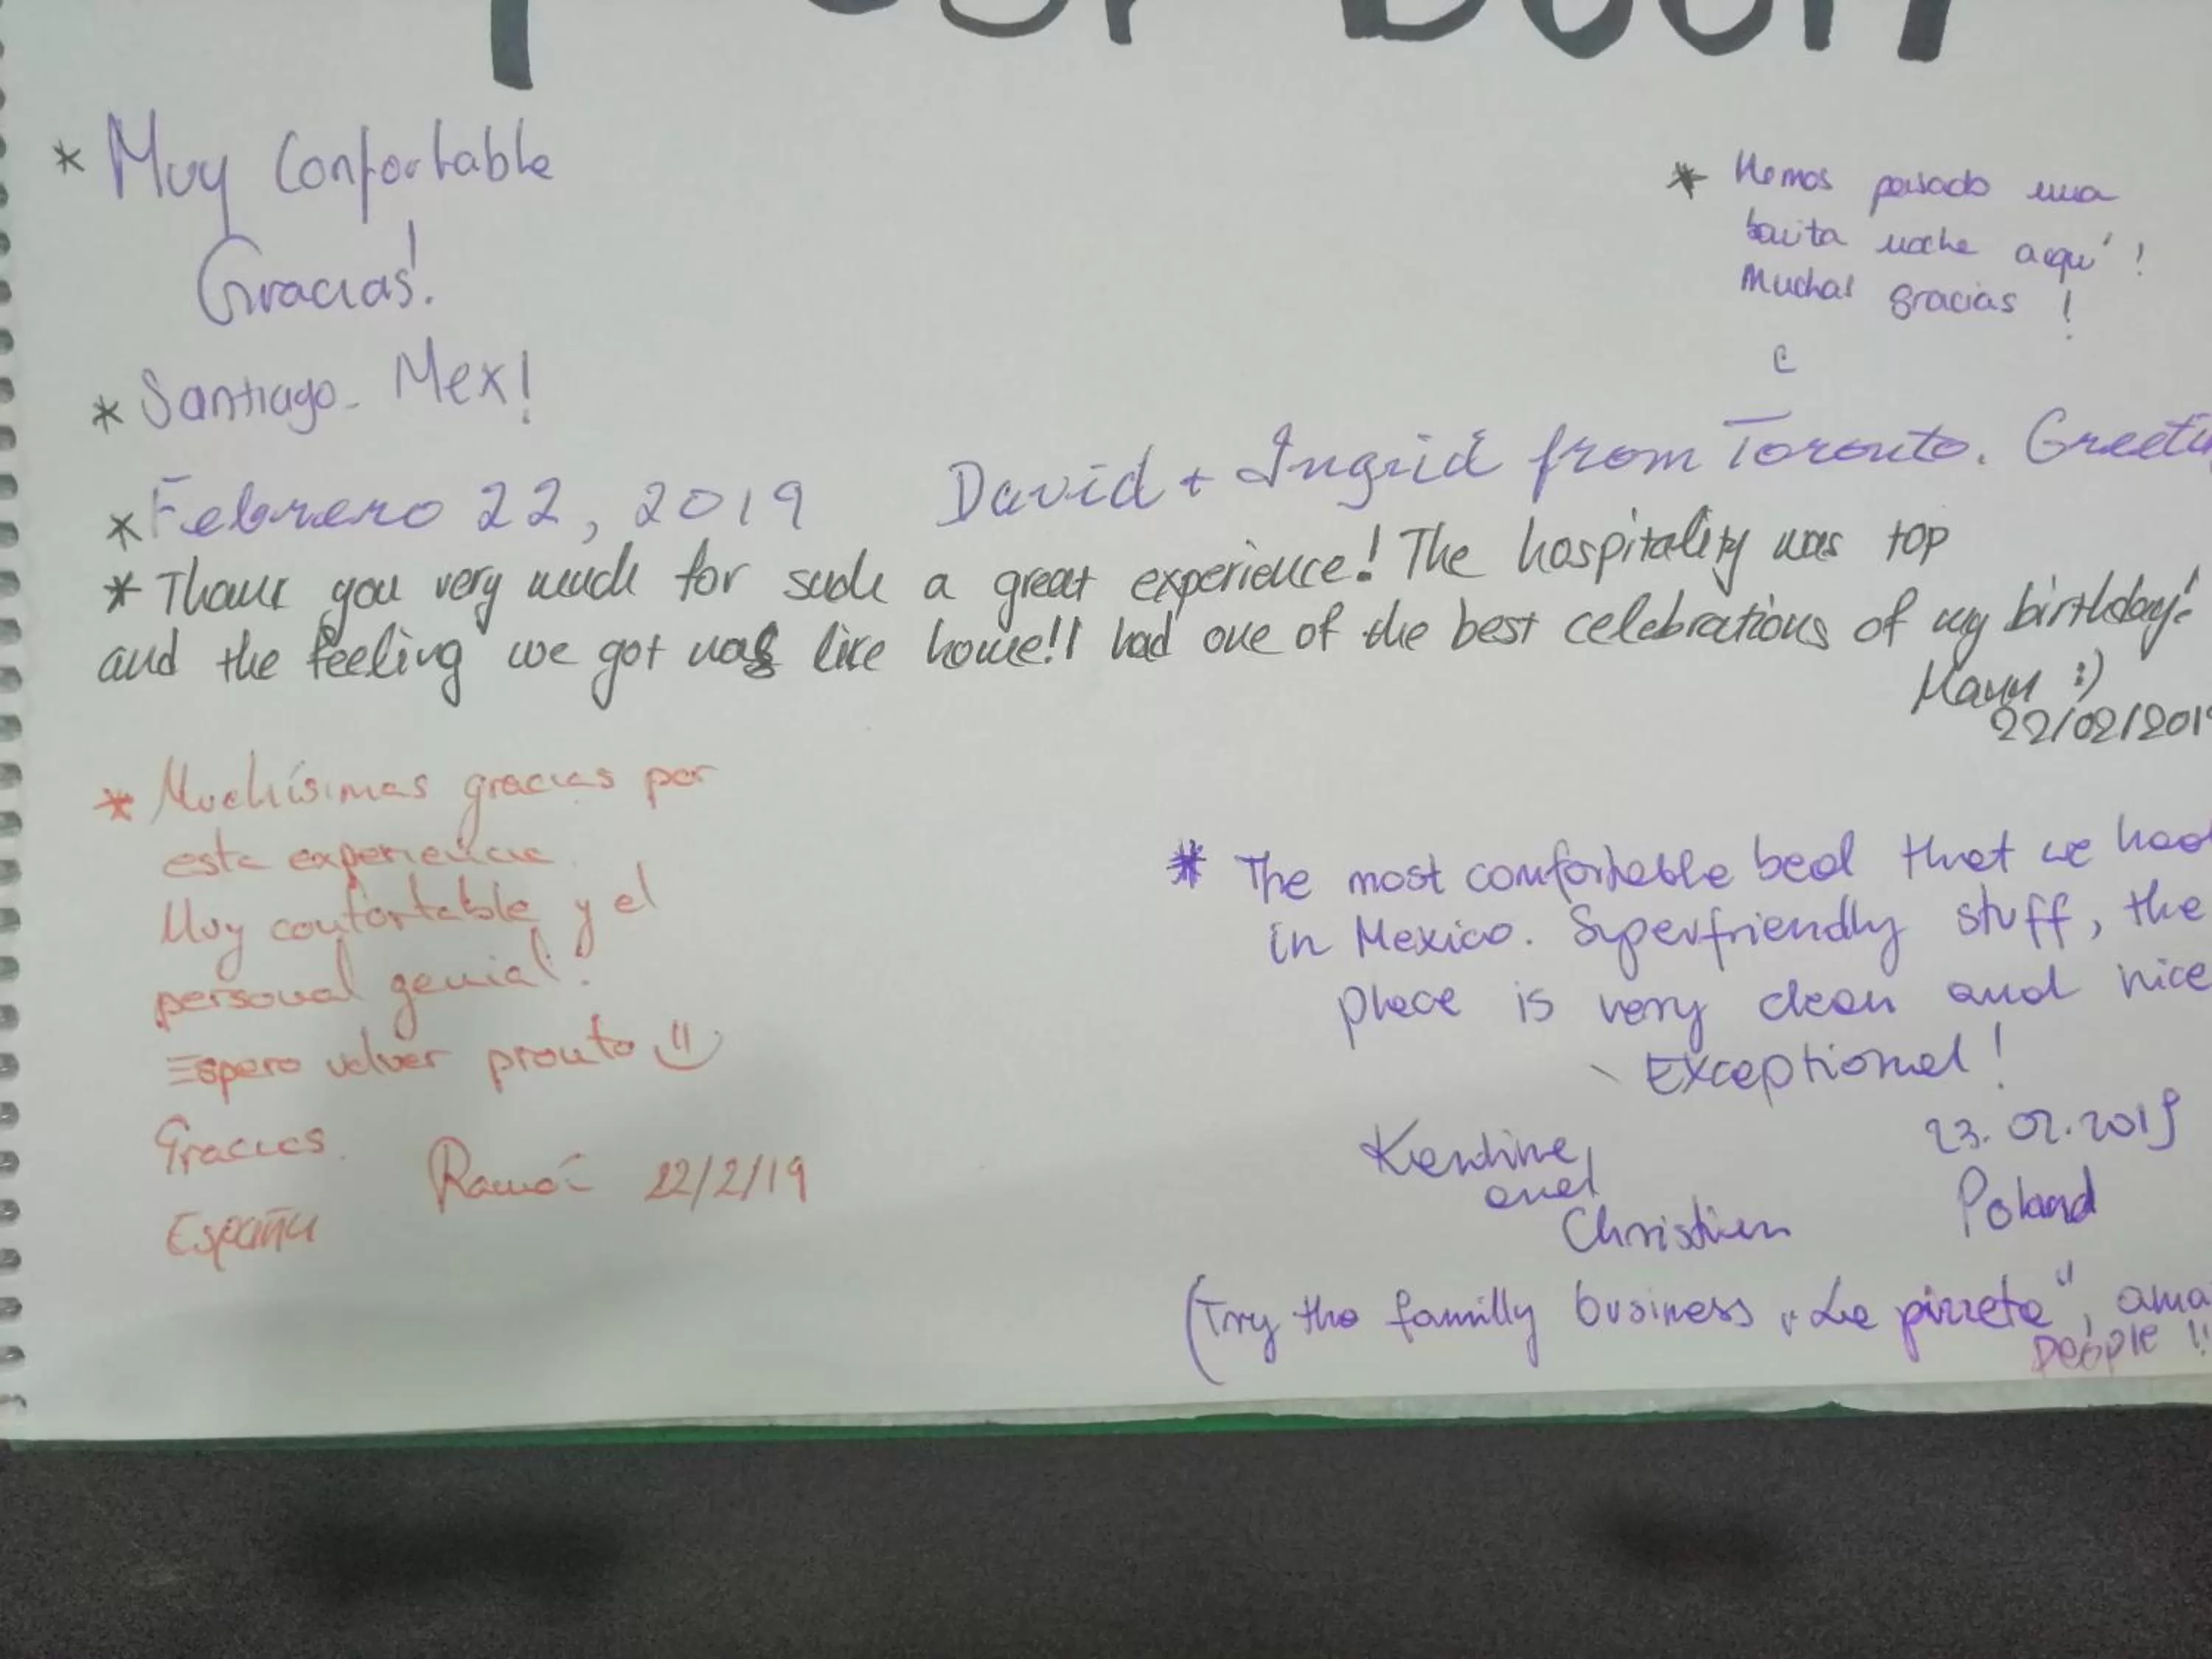 * Muy Confortable
Gracias!
* Santiago - Mex!
* Hemos pasado una
bonita noche aquí!
Muchas gracias !
C
* Febrero 22, 2019 David + Ingrid from Toronto.
* Thank you very much for such a great experience! The hospitality was top
and the feeling we got was like home!! had one of the best celebrations of my birthday!
:)
22/02/201
* Muchísimas gracias por
esta experiencia.
Muy confortable y el
personal genial!
Espero volver pronto
Gracias.
Ramón 22/2/19
España
* The most comfortable bed that we had
in Mexico. Superfriendly stuff, the
place is very clean and nice
- Exceptional!
and
Christian
23.02.2019
Poland
(Try the familly business „La pizzeta",
people !!